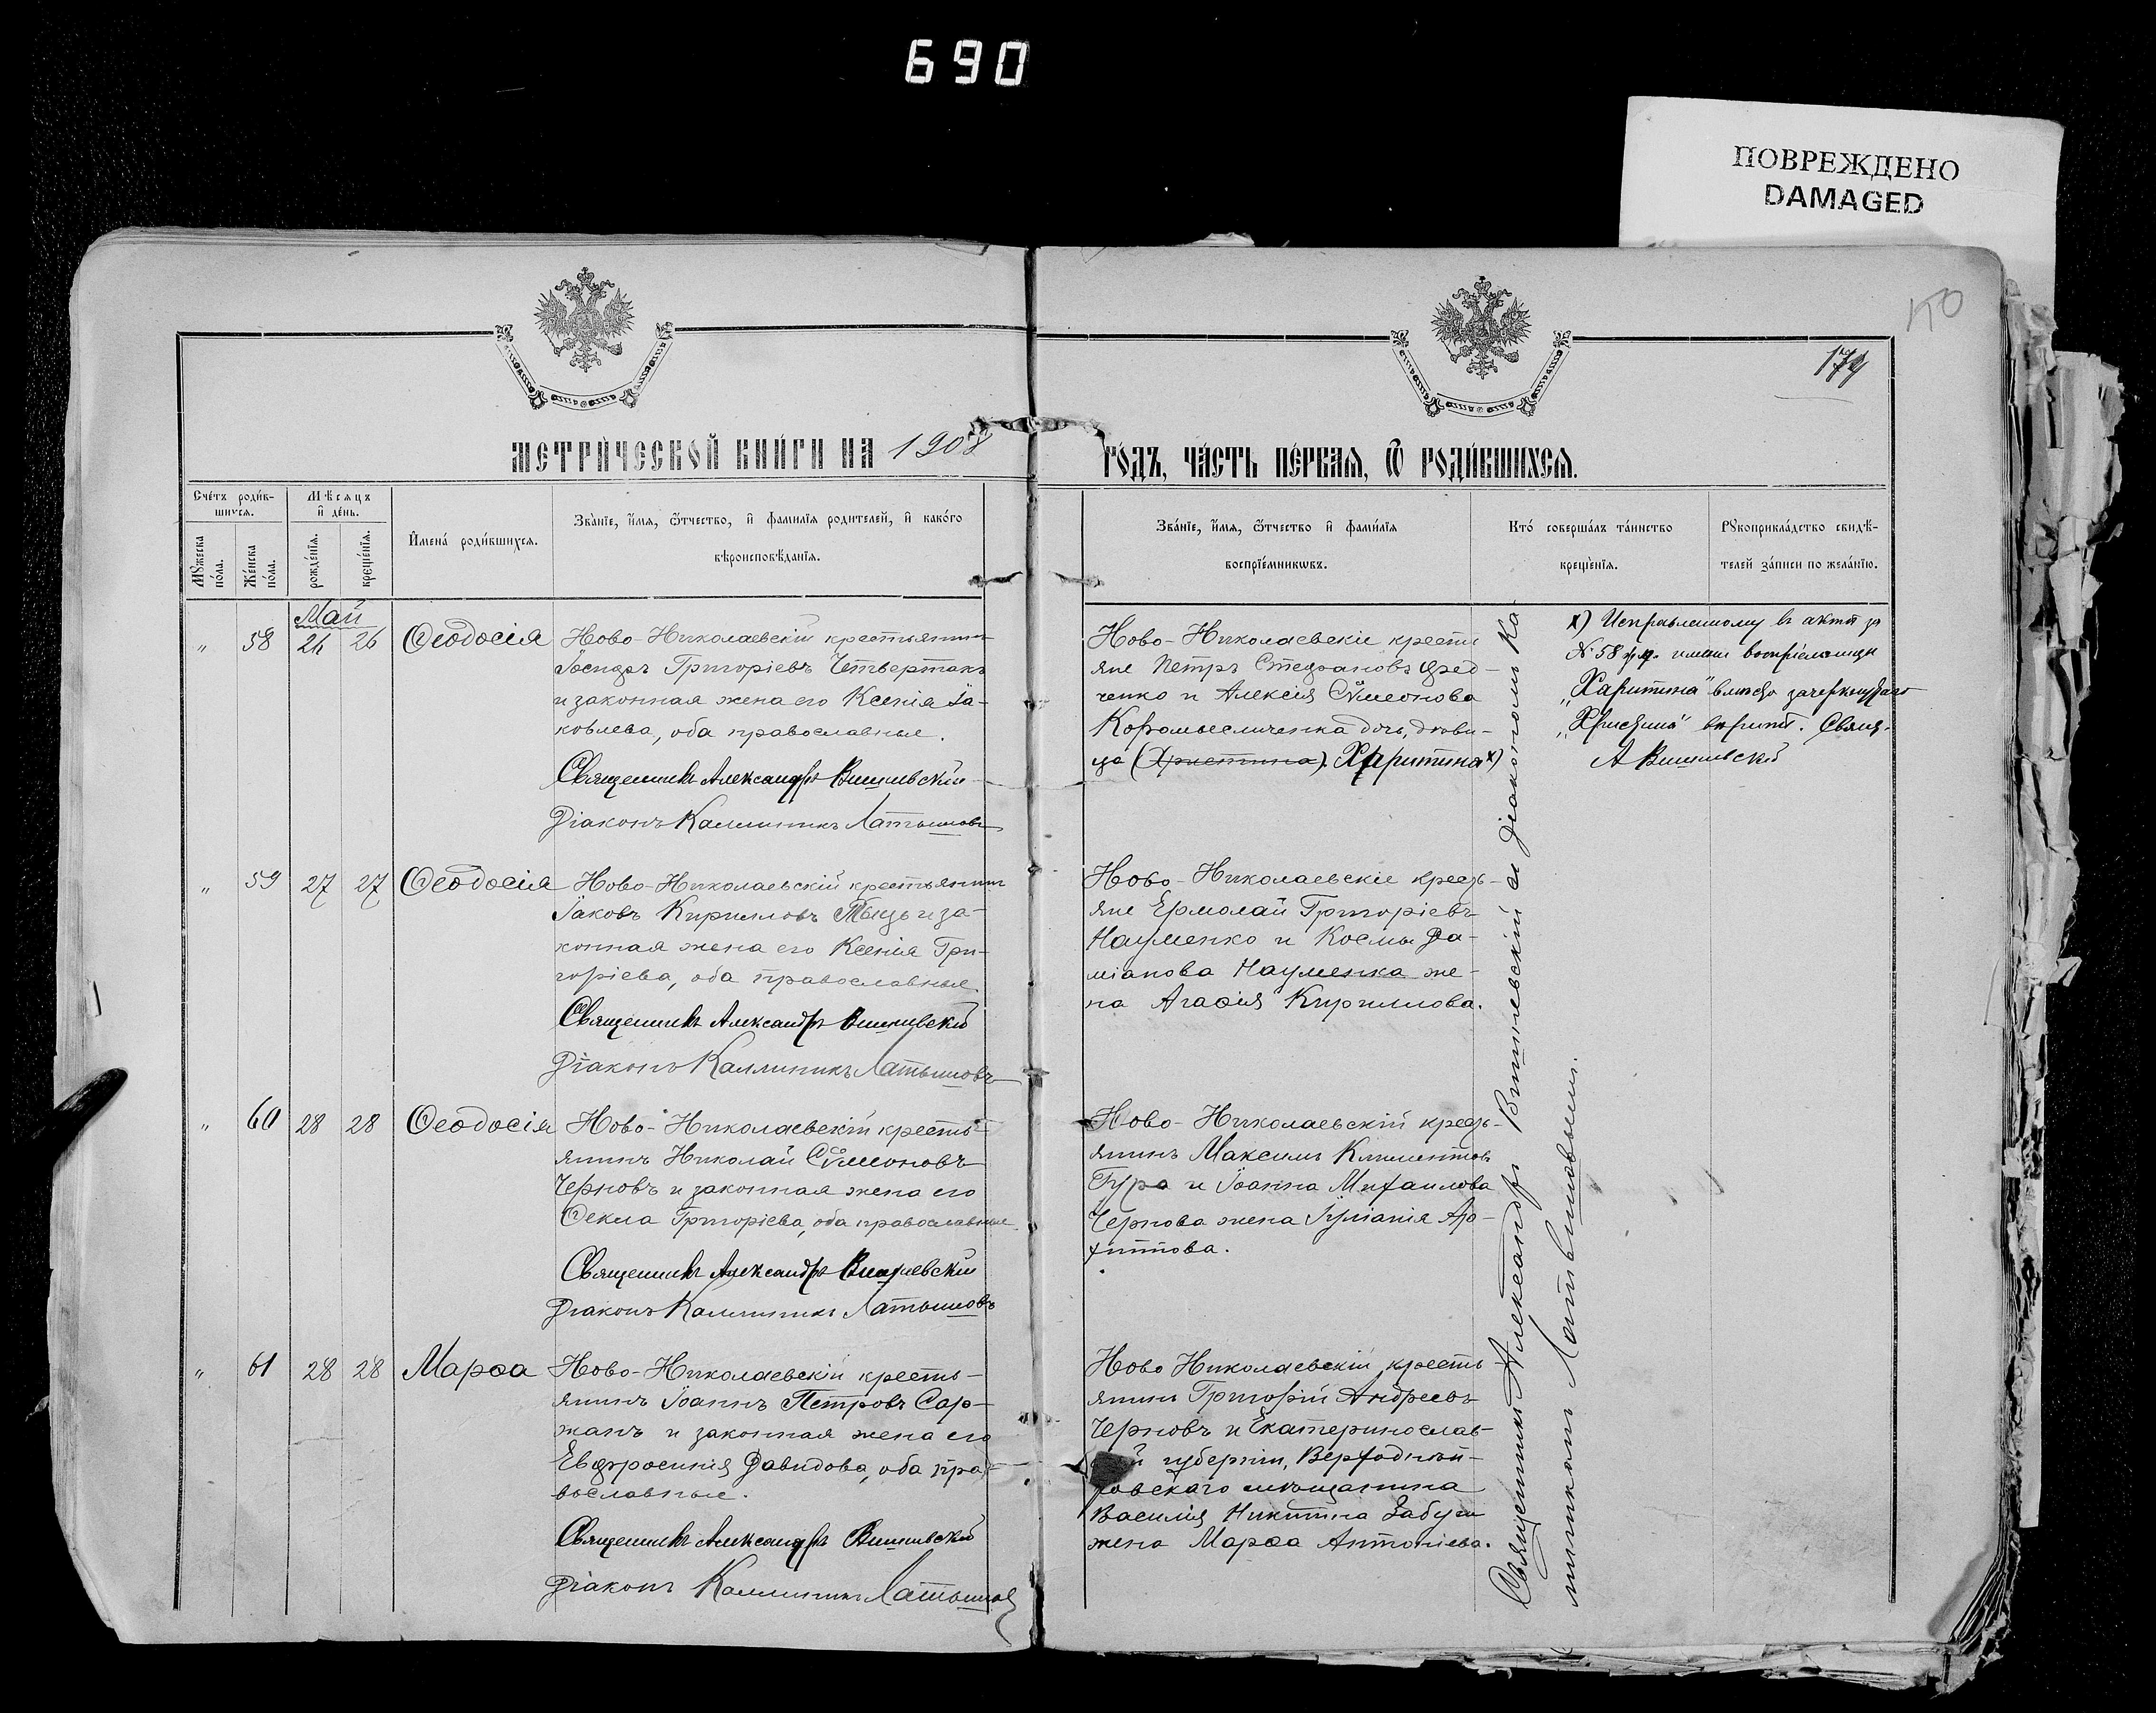 690
ПОВРЕЖДЕНО
DAMAGED
МЕТРИЧЕСКОЙ КНИГИ НА 1908
ГОДЪ, ЧАСТЬ ПЕРВАЯ, Ѿ РОДИВШИХСЯ.
Счетъ родив-
шихся.
Мѣсяцъ
и день.
Мꙋжеска
пола.
Женска
пола.
рожденїя.
крещенїя.
Имена родившихся.
Званїе, имя, ѿчество, и фамилїя родителей, и какого
вѣроисповѣданїя.
Званїе, имя, ѿчество и фамилїя
воспрїемникѡвъ.
Кто совершалъ таинство
крещенїя.
Рꙋкоприкладство свидѣ-
телей записи по желанїю.
Май
" 58 26 26 Ѳеодосія Ново-Николаевскій крестьянинъ
Григоріевъ Четвертакъ
и законная жена его Ксенія Іа-
ковлева, оба православные.
Священникъ Александръ Вишневскій
Діаконъ Каллиникъ Латышовъ
Ново-Николаевскіе кресть
яне Петръ Стефановъ Фред-
ченко и Алексія Сѵмеонова
дочь, дѣви-
ца (Христина) Харитина х)
х) Исправленному въ актѣ за
№ 58 имени воспріемницы
"Харитина" вмѣсто зачеркнутаго
"Христина" вѣрить. Свящ.
А Вишневскій
" 59 27 27 Ѳеодосія Ново-Николаевскій крестьянинъ
Іаковъ Кирилловъ и за-
конная жена его Ксенія Гри-
горіева, оба православные.
Священникъ Александръ Вишневскій
Діаконъ Каллиникъ Латышовъ
Ново-Николаевскіе кресть-
яне Ермолай Григоріевъ
Науменко и Космы Да-
міанова Науменка же-
на Агаѳія Кириллова.
" 60 28 28 Ѳеодосія Ново-Николаевскій кресть-
янинъ Николай Сѵмеоновъ
Черновъ и законная жена его
Ѳекла Григоріева, оба православные.
Священникъ Александръ Вишневскій
Діаконъ Каллиникъ Латышовъ
Ново-Николаевскій кресть-
янинъ Максимъ Климентовъ
Гура и Іоанна Михаилова
Чернова жена Іуліанія Ар-
хиппова.
" 61 28 28 Марѳа Ново-Николаевскій кресть-
янинъ Іоаннъ Петровъ Сар-
жанъ и законная жена его
Евфросинія Давидова, оба пра-
вославные.
Священникъ Александръ Вишневскій
Діаконъ Каллиникъ Латышовъ
Ново Николаевскій кресть
янинъ Григорій Андреевъ
Черновъ и Екатеринослав-
ской губерніи, Верходнѣп-
ровскаго мѣщанина
Василія Никитина
жена Марѳа Антоніева.
Священникъ Александръ Вишневскій съ діакономъ Ка-
ллиникомъ Латышовымъ.